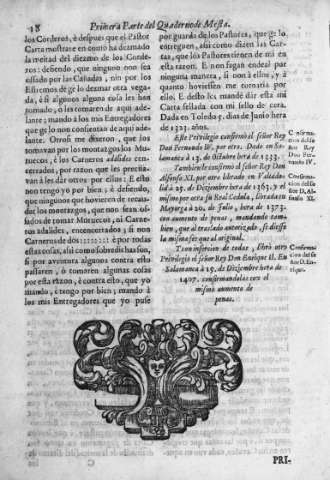 18 Primera Parte del Quaderno de Mesta.
los Corderos, è despues que el Pastor
Carta mostrare en como ha dezmado
la meitad del diezmo de los Corde-
ros: defiendo, que ninguno non sea
ossado por las Cañadas, nin por los
Estremos de ge lo dezmar otra vega-
da, è si algunos alguna cosa les han
tomado, q les tornaren de aqui ade-
lante; mando à los mis Entregadores
que ge lo non consientan de aqui ade-
lante. Otrosi me dixeron, que los
tomavan por los montazgos los Mo-
ruecos, è los Carneros adalides cen-
cerrados, por razon que les precisa-
van à les dar otros por ellos: E esto
non tengo yo por bien; è defiendo,
que ningunos que hovieren de recau-
dar los montazgos, que non sean os-
sados de tomar Moruecos, ni Carne-
ros adalides, encencerrados, si non
Carneros de dos :::::::::: è por todas
estas cosas, assi como sobredichas son,
si por aventura algunos contra esto
passaren, ò tomaren algunas cosas
por esta razon, è contra esto, que yo
mando, è tengo por bien; mando à
los mis Entregadores que yo puse
por guarda de los Pastores, que ge lo
entreguen, assi como dizen las Car-
tas, que los Pastores tienen de mi en
esta razon. E non fagan endeal por
ninguna manera, si non à ellos, y à
quanto hoviessen me tornaria por
ello, E desto les mandè dar esta mi
Carta sellada con mi sello de cera.
Dada en Toledo 5. dias de Junio hera
de 1323. años.
Este Privilegio confirmò el señor Rey
Don Fernando IV. por otro. Dado en Sa-
lamanca à 13. de Octubre hera de 1333.
Tambien le confirmò el señor Rey Don
Alfonso XI. por otro librado en Vallado-
lid à 25. de Deziembre hera de 1363. y el
mismo por otra su Real Cedula, librada en
Mayorga à 20. de Julio, hera de 1373.
con aumento de penas, mandando tam-
bien, que al traslado autorizado, si diesse
la misma fee que al original.
Y con insercion de todos, librò otro
Privilegio el señor Rey Don Enrique II. En
Salamanca à 19. de Diziembre hera de
1407. confirmandolas con el
mismo aumento de
penas.
Confirma-
cion del se-
ñor Rey
Don Fer-
nando IV.
Confirma-
cion del se-
ñor D. Al-
fonso XI.
Confirma-
cion del se-
ñor D. En-
rique.
PRI-